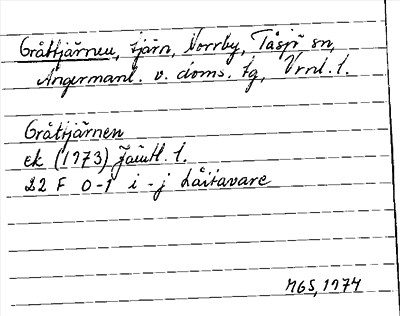 Gråttjärnen, tjärn, Norrby, Tåsjö sn,
Ångermanl. v. doms. tg, Vrnl. l.
Gråtjärnen
ek (1973) Jämtl. l.
22 F 0-1 i-j Låitavare
MGS, 1974